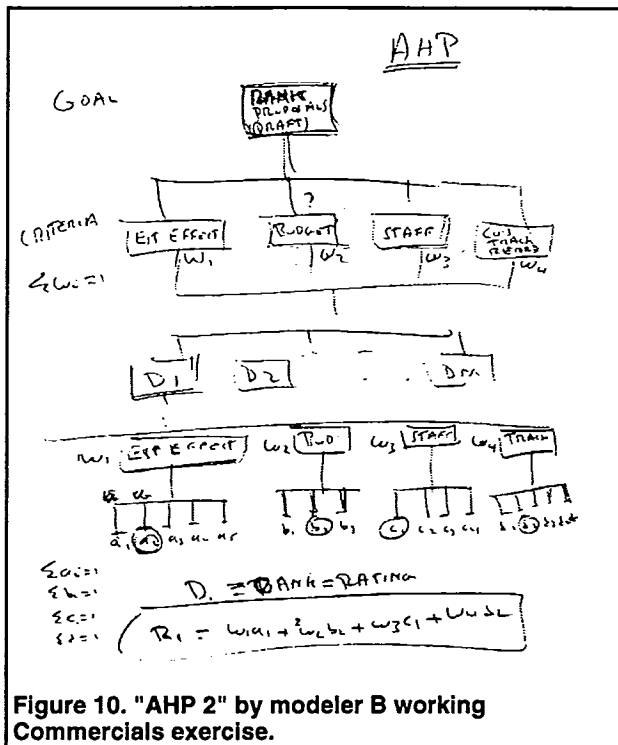 AHP
GOAL
RANK
PROPOSALS
(DRAFT)
?
CRITERIA
EXP EFFECT
BUDGET
STAFF
CU'S
TRACK
RECORD
W1 W2 W3 W4
Σwi=1
D1 D2 Dm
W1 EXP EFFECT W2 BUD W3 STAFF W4 TRACK
a1 a2 a3 a4 a5 b1 b2 b3 c1 c2 c3 c4 d1 d2 d3 d4
Σai=1
Σb=1
Σc=1
Σd=1
D1 = RANK = RATING
R1 = w1a1 + w2b2 + w3c1 + w4d2
Figure 10. "AHP 2" by modeler B working
Commercials exercise.